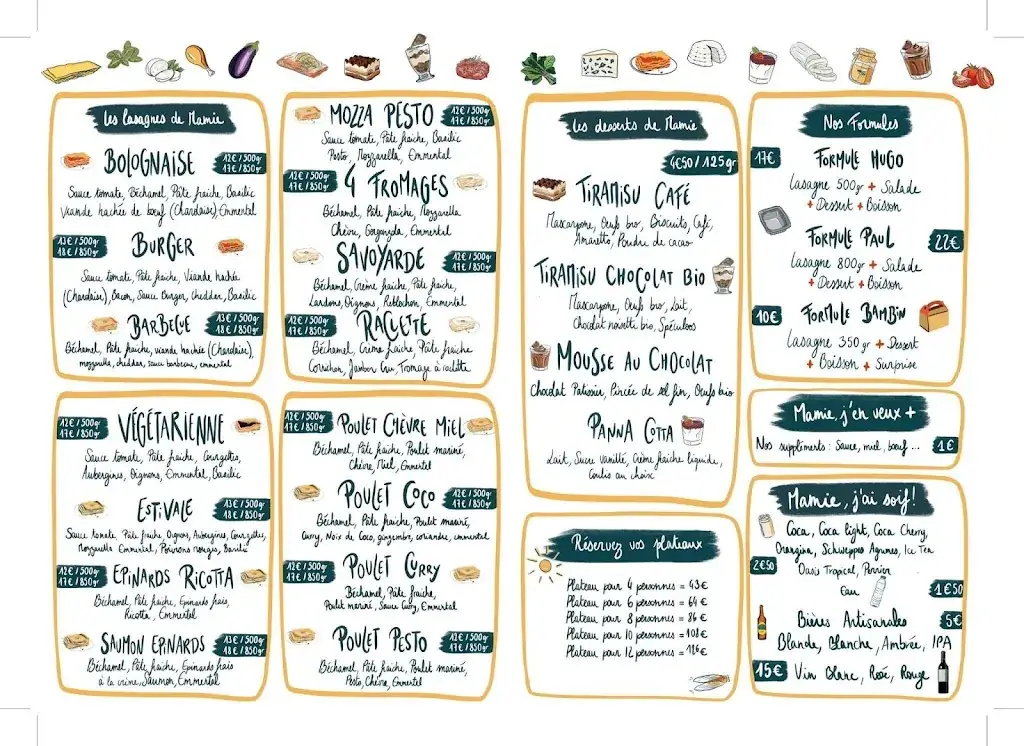 Les lasagnes de Mamie
BOLOGNAISE
12€ / 500gr
17€ / 850gr
Sauce tomate, Béchamel, Pâte fraîche, Basilic
Viande hachée de bœuf (Charolaise), Emmental
13€ / 500gr
18€ / 850gr
BURGER
Sauce tomate, Pâte fraîche, Viande hachée
(Charolaise), Bacon, Sauce Burger, cheddar, Basilic
BARBECUE
13€ / 500gr
18€ / 850gr
Béchamel, Pâte fraîche, viande hachée (Charolaise),
mozzarella, cheddar, sauce barbecue, emmental
MOZZA PESTO
12€ / 500gr
17€ / 850gr
Sauce tomate, Pâte fraîche, Basilic
Pesto, Mozzarella, Emmental
12€ / 500gr
17€ / 850gr
4 FROMAGES
Béchamel, Pâte fraîche, Mozzarella
Chèvre, Gorgonzola, Emmental
SAVOYARDE
12€ / 500gr
17€ / 850gr
Béchamel, Crème fraîche, Pâte fraîche,
Lardons, Oignons, Reblochon, Emmental
12€ / 500gr
17€ / 850gr
RACLETTE
Béchamel, Crème fraîche, Pâte fraîche
Cornichon, Jambon Cru, Fromage à raclette
12€ / 500gr
17€ / 850gr
VÉGÉTARIENNE
Sauce tomate, Pâte fraîche, Courgettes,
Aubergines, Oignons, Emmental, Basilic
ESTIVALE
13€ / 500gr
18€ / 850gr
Sauce tomate, Pâte fraîche, Oignons, Aubergines, Courgettes,
Mozzarella Emmental, Poivrons rouges, Basilic
12€ / 500gr
17€ / 850gr
EPINARDS RICOTTA
Béchamel, Pâte fraîche, Epinards frais,
Ricotta, Emmental
SAUMON EPINARDS
13€ / 500gr
18€ / 850gr
Béchamel, Pâte fraîche, Epinards frais
à la crème, Saumon, Emmental
12€ / 500gr
17€ / 850gr
POULET CHÈVRE MIEL
Béchamel, Pâte fraîche, Poulet mariné,
Chèvre, Miel, Emmental
POULET COCO
12€ / 500gr
17€ / 850gr
Béchamel, Pâte fraîche, Poulet mariné,
Curry, Noix de Coco, gingembre, coriandre, emmental
12€ / 500gr
17€ / 850gr
POULET CURRY
Béchamel, Pâte fraîche,
Poulet mariné, Sauce Curry, Emmental
POULET PESTO
12€ / 500gr
17€ / 850gr
Béchamel, Pâte fraîche, Poulet mariné,
Pesto, Chèvre, Emmental
Les desserts de Mamie
4€50 / 125gr
TIRAMISU CAFÉ
Mascarpone, Œufs bio, Biscuits, Café,
Amaretto, Poudre de cacao
TIRAMISU CHOCOLAT BIO
Mascarpone, Œufs bio, Lait,
Chocolat noisette bio, Spéculoos
MOUSSE AU CHOCOLAT
Chocolat Patissier, Pincée de sel fin, Œufs bio
PANNA COTTA
Lait, Sucre vanillé, Crème fraîche liquide,
Coulis au choix
Réservez vos plateaux
Plateau pour 4 personnes = 43€
Plateau pour 6 personnes = 64€
Plateau pour 8 personnes = 86€
Plateau pour 10 personnes = 108€
Plateau pour 12 personnes = 116€
Nos Formules
17€
FORMULE HUGO
Lasagne 500gr + Salade
+ Dessert + Boisson
FORMULE PAUL
22€
Lasagne 800gr + Salade
+ Dessert + Boisson
10€
FORMULE BAMBIN
Lasagne 350gr + Dessert
+ Boisson + Surprise
Mamie, j'en veux +
Nos suppléments : Sauce, miel, bœuf ... 1€
Mamie, j'ai soif!
Coca, Coca light, Coca Cherry,
Orangina, Schweppes Agrumes, Ice Tea
Oasis Tropical, Perrier
2€50
Eau
1€50
Bières Artisanales
5€
Blonde, Blanche, Ambrée, IPA
15€
Vin Blanc, Rosé, Rouge